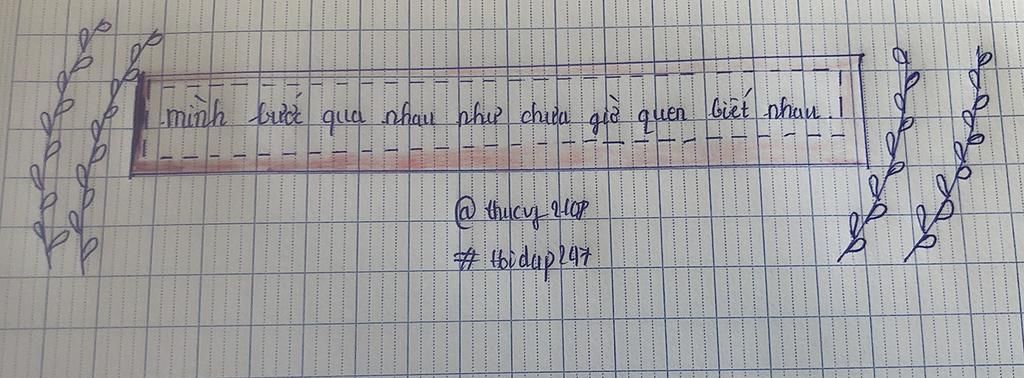 mình bước qua nhau như chưa giờ quen biết nhau.
@thucvy_2108
# tbidap247